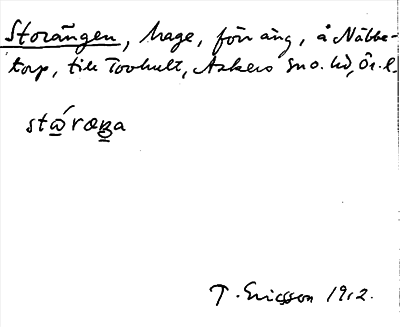 Storängen, hage, förr äng, å Näbbe-
torp, till Tovhult, Askers sn o. hd, Ör. l.
stώræŋa
T. Ericsson 1912.